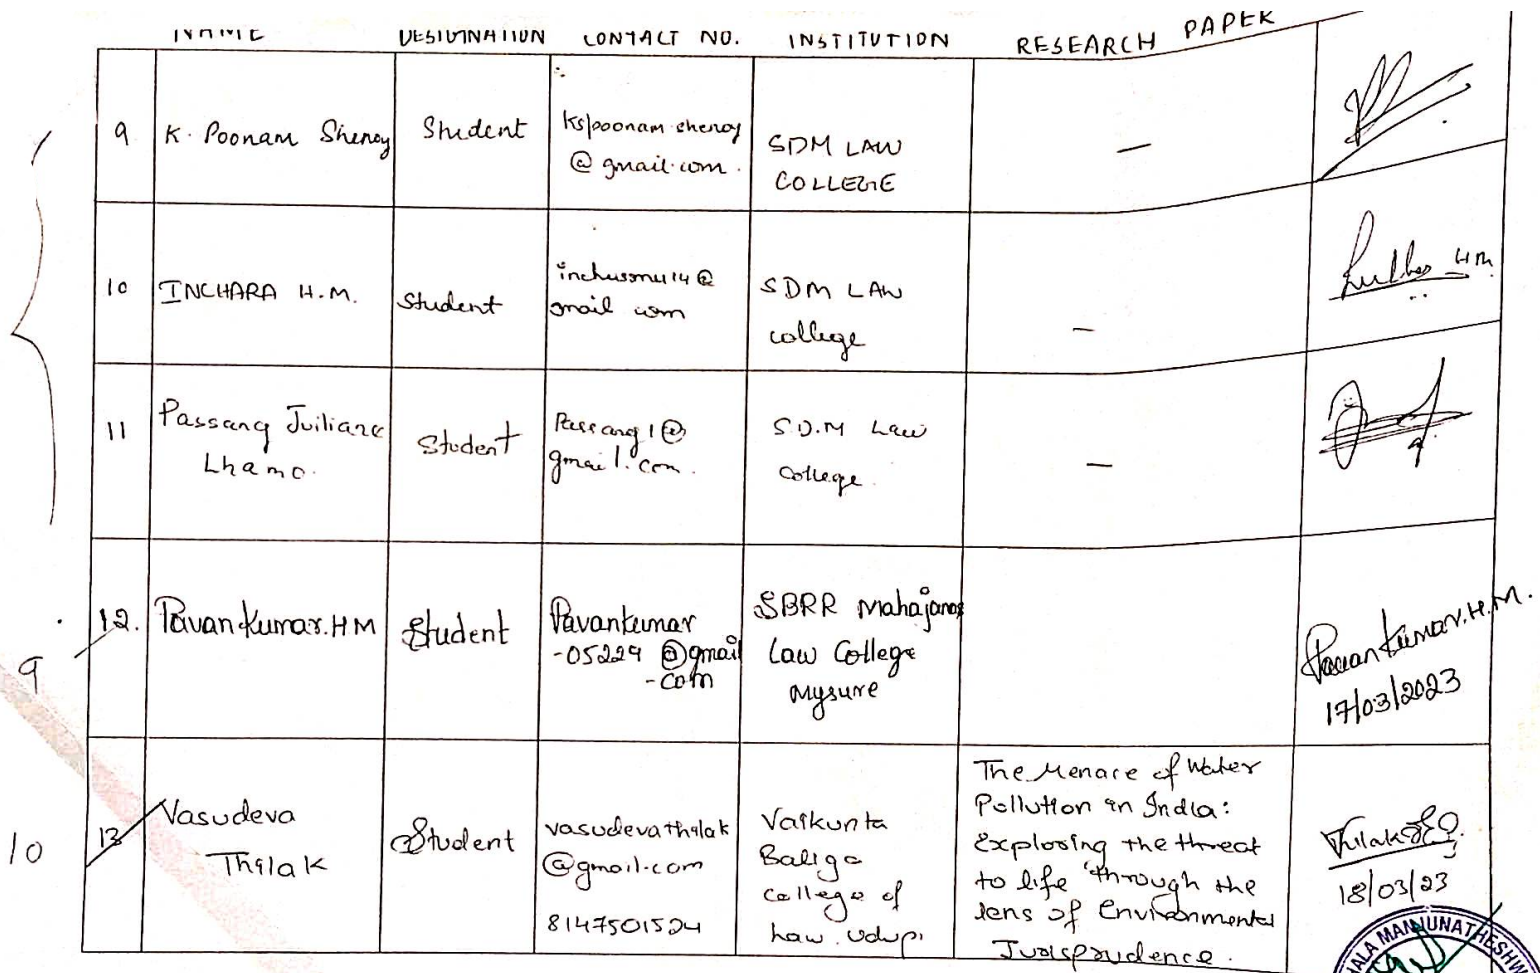 NAME DESIGNATION CONTACT NO. INSTITUTION RESEARCH PAPER
9 K. Poonam Shenoy Student ks1poonam.shenoy
@gmail.com.
SDM LAW
COLLEGE
—
10 INCHARA H.M. Student
gmail com
SDM LAW
college
—
H M
11 Passang Juiliane
Lhamo.
Student
Passang1@
gmail.com.
S.D.M Law
College.
—
9
12. Pavan Kumar.HM Student Pavankumar
-05229 @gmail
-com
SBRR Mahajanas
Law College
Mysure
Pavan Kumar.H.M.
17/03/2023
10
13 Vasudeva
Thilak
Student
vasudevathilak
@gmail.com
8147501524
Vaikunta
Baliga
college of
Law. Udupi
The Menace of Water
Pollution in India:
Exploring the threat
to life through the
lens of Environmental
Jurisprudence.
Thilak
18/03/23
ALA MANJUNATHESHW